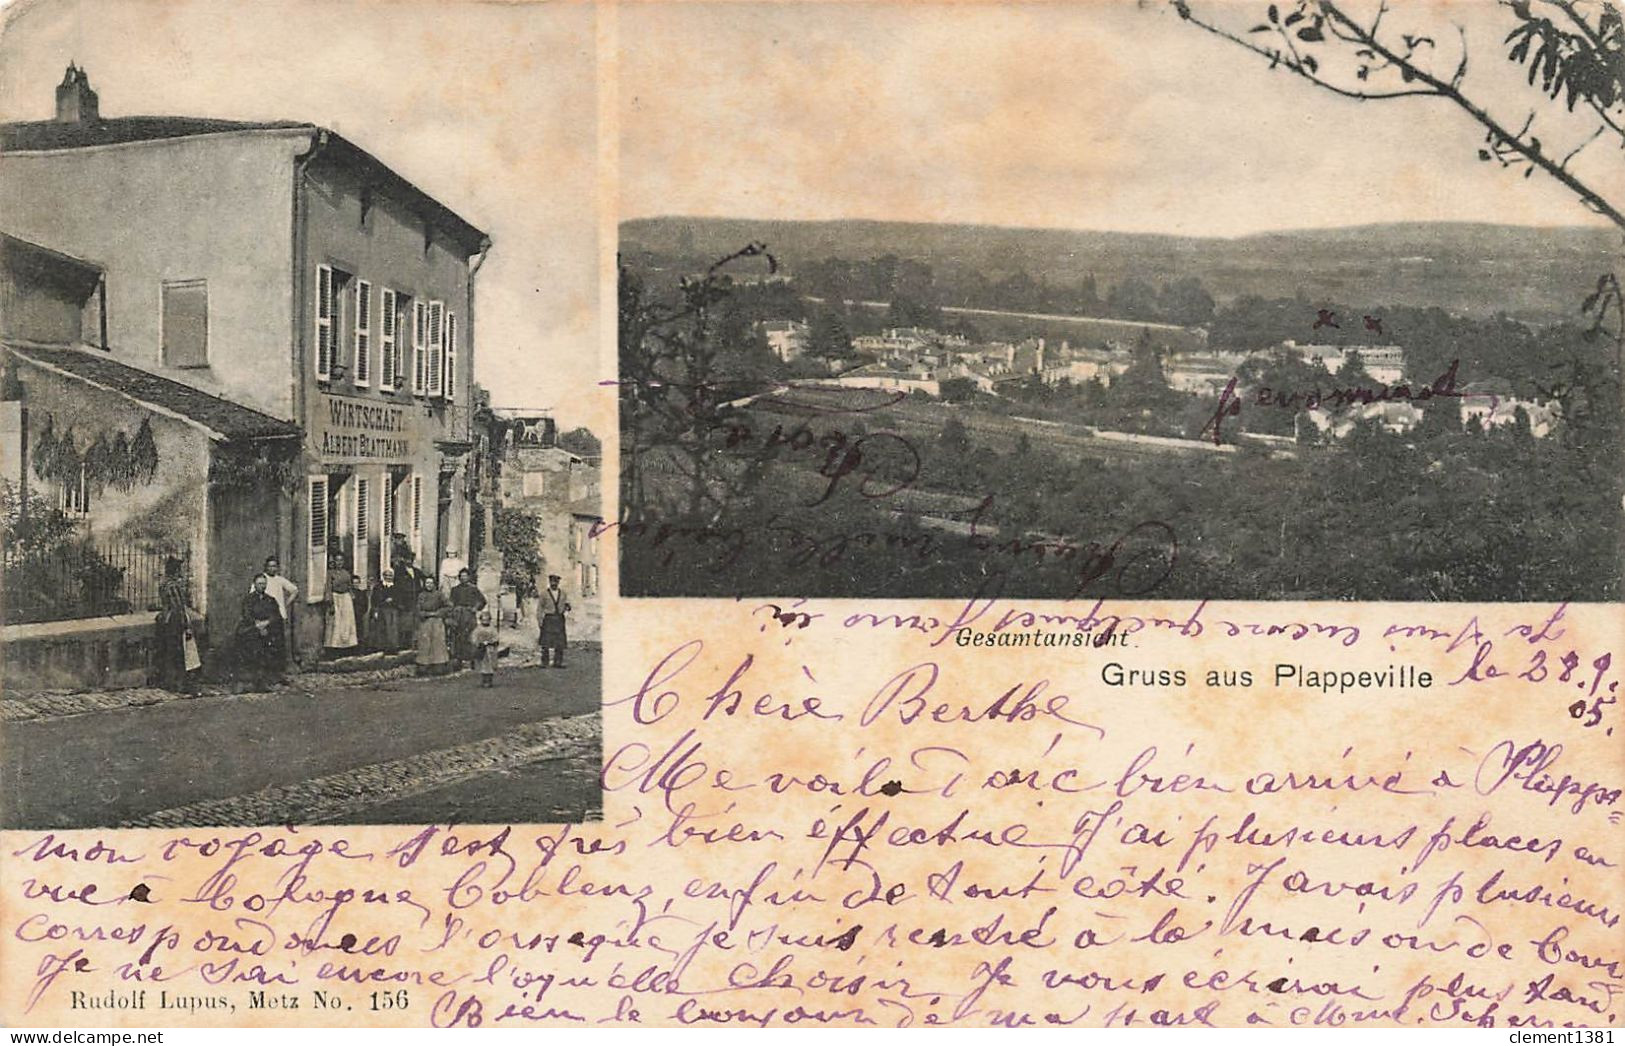 WIRTSCHAFT
ALBERT BLATTMANN
x x
pensionnat
Gesamtansicht.
Gruss aus Plappeville
le 28.9.
05.
Chère Berthe
Me voila donc bien arrivé à Plappe=
mon voyage s'est très bien éffectué J'ai plusieurs places en
vue à Cologne Coblenz, enfin de tout côté. J'avais plusieurs
correspondances lorseque je suis rentré à la maison de
Je ne sai encore loqu'elle choisir. Je vous écrirai plus tard.
Bien le bonjour de ma part à Mme.
Je suis encore quelques jours ici
mille
Rudolf Lupus, Metz No. 156
delcampe.net
clement1381